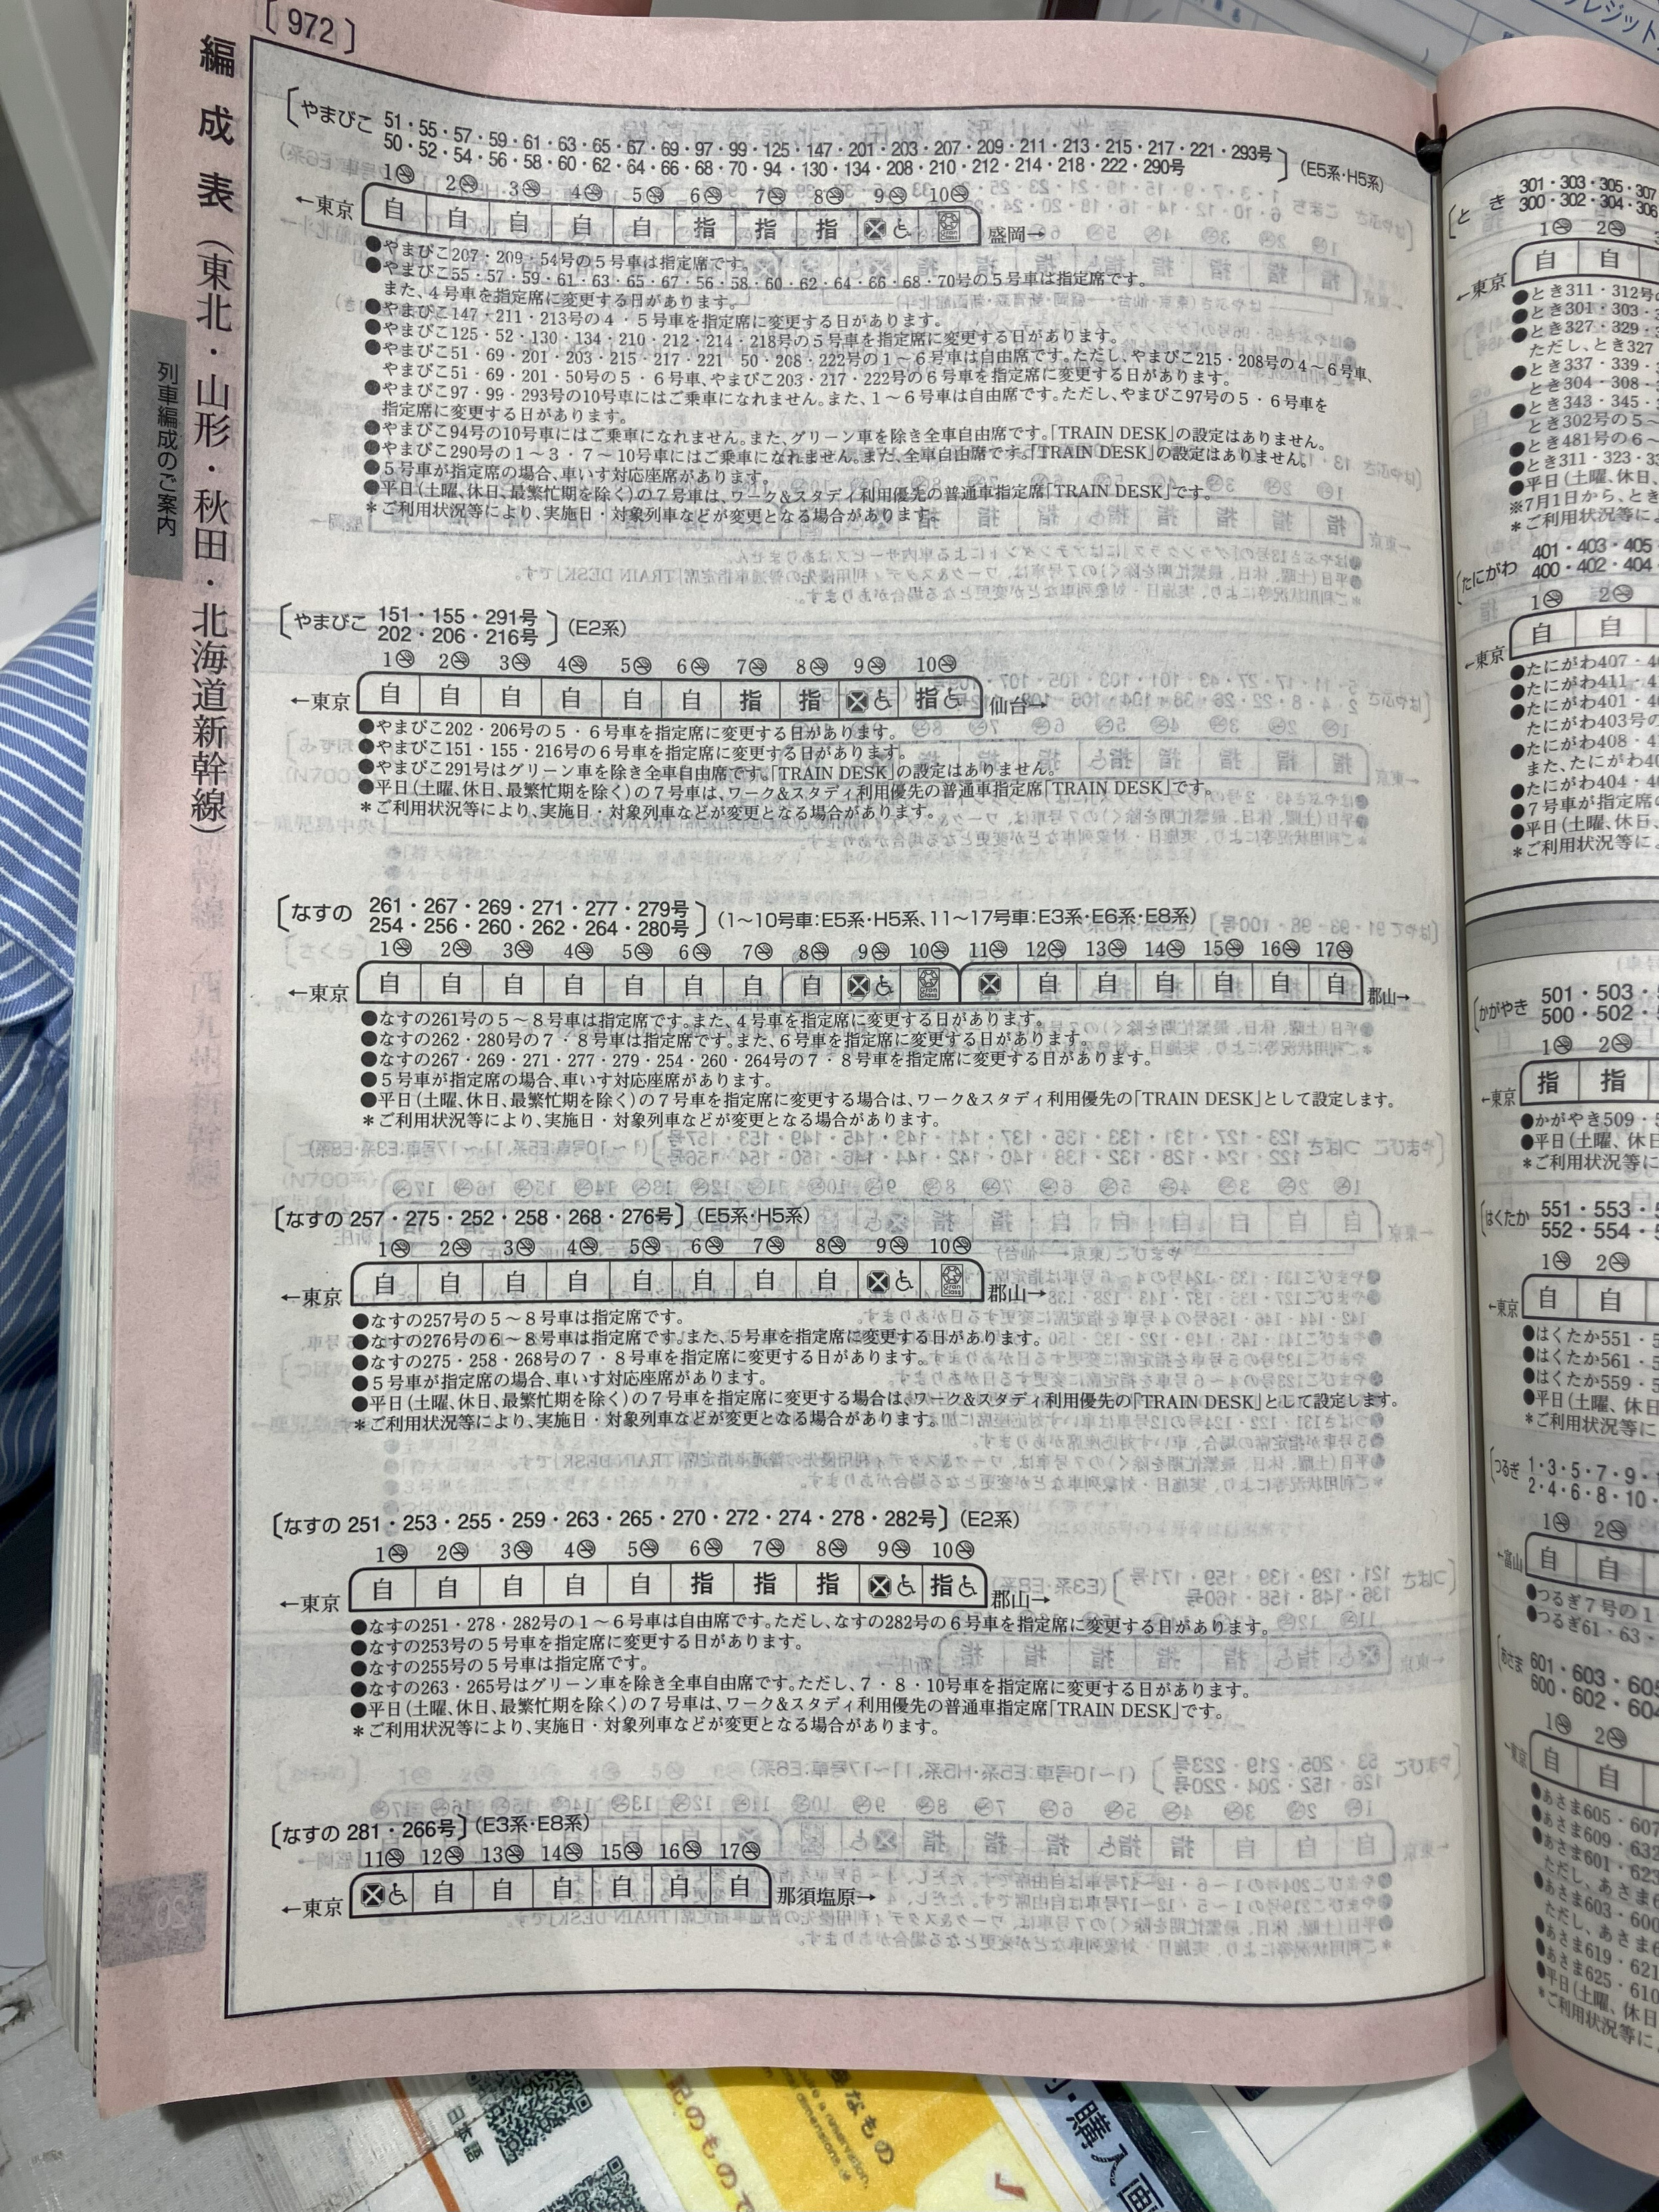 〔972〕
編成表（東北・山形・秋田・北海道新幹線）
列車編成のご案内
〔やまびこ 51・55・57・59・61・63・65・67・69・97・99・125・147・201・203・207・209・211・213・215・217・221・293号
50・52・54・56・58・60・62・64・66・68・70・94・130・134・208・210・212・214・218・222・290号〕(E5系・H5系)
1 2 3 4 5 6 7 8 9 10
←東京 自 自 自 自 自 指 指 指 盛岡→
●やまびこ207・209・54号の５号車は指定席です。
●やまびこ55・57・59・61・63・65・67・56・58・60・62・64・66・68・70号の５号車は指定席です。
また、４号車を指定席に変更する日があります。
●やまびこ147・211・213号の４・５号車を指定席に変更する日があります。
●やまびこ125・52・130・134・210・212・214・218号の５号車を指定席に変更する日があります。
●やまびこ51・69・201・203・215・217・221 50・208・222号の１～６号車は自由席です。ただし、やまびこ215・208号の４～６号車、
やまびこ51・69・201・50号の５・６号車、やまびこ203・217・222号の６号車を指定席に変更する日があります。
●やまびこ97・99・293号の10号車にはご乗車になれません。また、１～６号車は自由席です。ただし、やまびこ97号の５・６号車を
指定席に変更する日があります。
●やまびこ94号の10号車にはご乗車になれません。また、グリーン車を除き全車自由席です。「TRAIN DESK」の設定はありません。
●やまびこ290号の１～３・７～10号車にはご乗車になれません。また、全車自由席です。「TRAIN DESK」の設定はありません。
●５号車が指定席の場合、車いす対応座席があります。
●平日(土曜、休日、最繁忙期を除く)の７号車は、ワーク&スタディ利用優先の普通車指定席「TRAIN DESK」です。
＊ご利用状況等により、実施日・対象列車などが変更となる場合があります。
〔やまびこ 151・155・291号
202・206・216号〕(E2系)
1 2 3 4 5 6 7 8 9 10
←東京 自 自 自 自 自 自 指 指 指 仙台→
●やまびこ202・206号の５・６号車を指定席に変更する日があります。
●やまびこ151・155・216号の６号車を指定席に変更する日があります。
●やまびこ291号はグリーン車を除き全車自由席です。「TRAIN DESK」の設定はありません。
●平日(土曜、休日、最繁忙期を除く)の７号車は、ワーク&スタディ利用優先の普通車指定席「TRAIN DESK」です。
＊ご利用状況等により、実施日・対象列車などが変更となる場合があります。
〔なすの 261・267・269・271・277・279号
254・256・260・262・264・280号〕(1～10号車:E5系・H5系、11～17号車:E3系・E6系・E8系)
1 2 3 4 5 6 7 8 9 10 11 12 13 14 15 16 17
←東京 自 自 自 自 自 自 自 自 自 自 自 自 自 自 郡山→
●なすの261号の５～８号車は指定席です。また、４号車を指定席に変更する日があります。
●なすの262・280号の７・８号車は指定席です。また、６号車を指定席に変更する日があります。
●なすの267・269・271・277・279・254・260・264号の７・８号車を指定席に変更する日があります。
●５号車が指定席の場合、車いす対応座席があります。
●平日(土曜、休日、最繁忙期を除く)の７号車を指定席に変更する場合は、ワーク&スタディ利用優先の「TRAIN DESK」として設定します。
＊ご利用状況等により、実施日・対象列車などが変更となる場合があります。
〔なすの 257・275・252・258・268・276号〕(E5系・H5系)
1 2 3 4 5 6 7 8 9 10
←東京 自 自 自 自 自 自 自 自 郡山→
●なすの257号の５～８号車は指定席です。
●なすの276号の６～８号車は指定席です。また、５号車を指定席に変更する日があります。
●なすの275・258・268号の７・８号車を指定席に変更する日があります。
●５号車が指定席の場合、車いす対応座席があります。
●平日(土曜、休日、最繁忙期を除く)の７号車を指定席に変更する場合は、ワーク&スタディ利用優先の「TRAIN DESK」として設定します。
＊ご利用状況等により、実施日・対象列車などが変更となる場合があります。
〔なすの 251・253・255・259・263・265・270・272・274・278・282号〕(E2系)
1 2 3 4 5 6 7 8 9 10
←東京 自 自 自 自 自 指 指 指 指 郡山→
●なすの251・278・282号の１～６号車は自由席です。ただし、なすの282号の６号車を指定席に変更する日があります。
●なすの253号の５号車を指定席に変更する日があります。
●なすの255号の５号車は指定席です。
●なすの263・265号はグリーン車を除き全車自由席です。ただし、７・８・10号車を指定席に変更する日があります。
●平日(土曜、休日、最繁忙期を除く)の７号車は、ワーク&スタディ利用優先の普通車指定席「TRAIN DESK」です。
＊ご利用状況等により、実施日・対象列車などが変更となる場合があります。
〔なすの 281・266号〕(E3系・E8系)
11 12 13 14 15 16 17
←東京 自 自 自 自 自 自 那須塩原→
〔とき 301・303・305・307
300・302・304・306
1 2
←東京 自 自
●とき311・312号の
●とき301・303・
●とき327・329・3
ただし、とき327
●とき337・339・
●とき304・308・
●とき343・345・
とき302号の５～
●とき481号の６～
●とき311・323・3
●平日(土曜、休日、
※7月1日から、とき
＊ご利用状況等によ
〔たにがわ 401・403・405・
400・402・404・
1 2
←東京 自 自
●たにがわ407・4
●たにがわ411・4
●たにがわ401・4
たにがわ403号の
●たにがわ408・4
また、たにがわ40
●たにがわ404・4
●７号車が指定席の
●平日(土曜、休日、
＊ご利用状況等によ
〔かがやき 501・503・
500・502・
1 2
←東京 指 指
●かがやき509・5
●平日(土曜、休日
＊ご利用状況等に
〔はくたか 551・553・
552・554・
1 2
←東京 自 自
●はくたか551・5
●はくたか561・5
●はくたか559・5
●平日(土曜、休日
＊ご利用状況等に
〔つるぎ 1・3・5・7・9・
2・4・6・8・10・
1 2
←富山 自 自
●つるぎ７号の１
●つるぎ61・63・
〔あさま 601・603・605
600・602・604
1 2
←東京 自 自
●あさま605・607
●あさま609・632
●あさま601・623
ただし、あさま6
●あさま603・600
ただし、あさま6
●あさま619・621
●あさま625・610
●平日(土曜、休日
＊ご利用状況等に